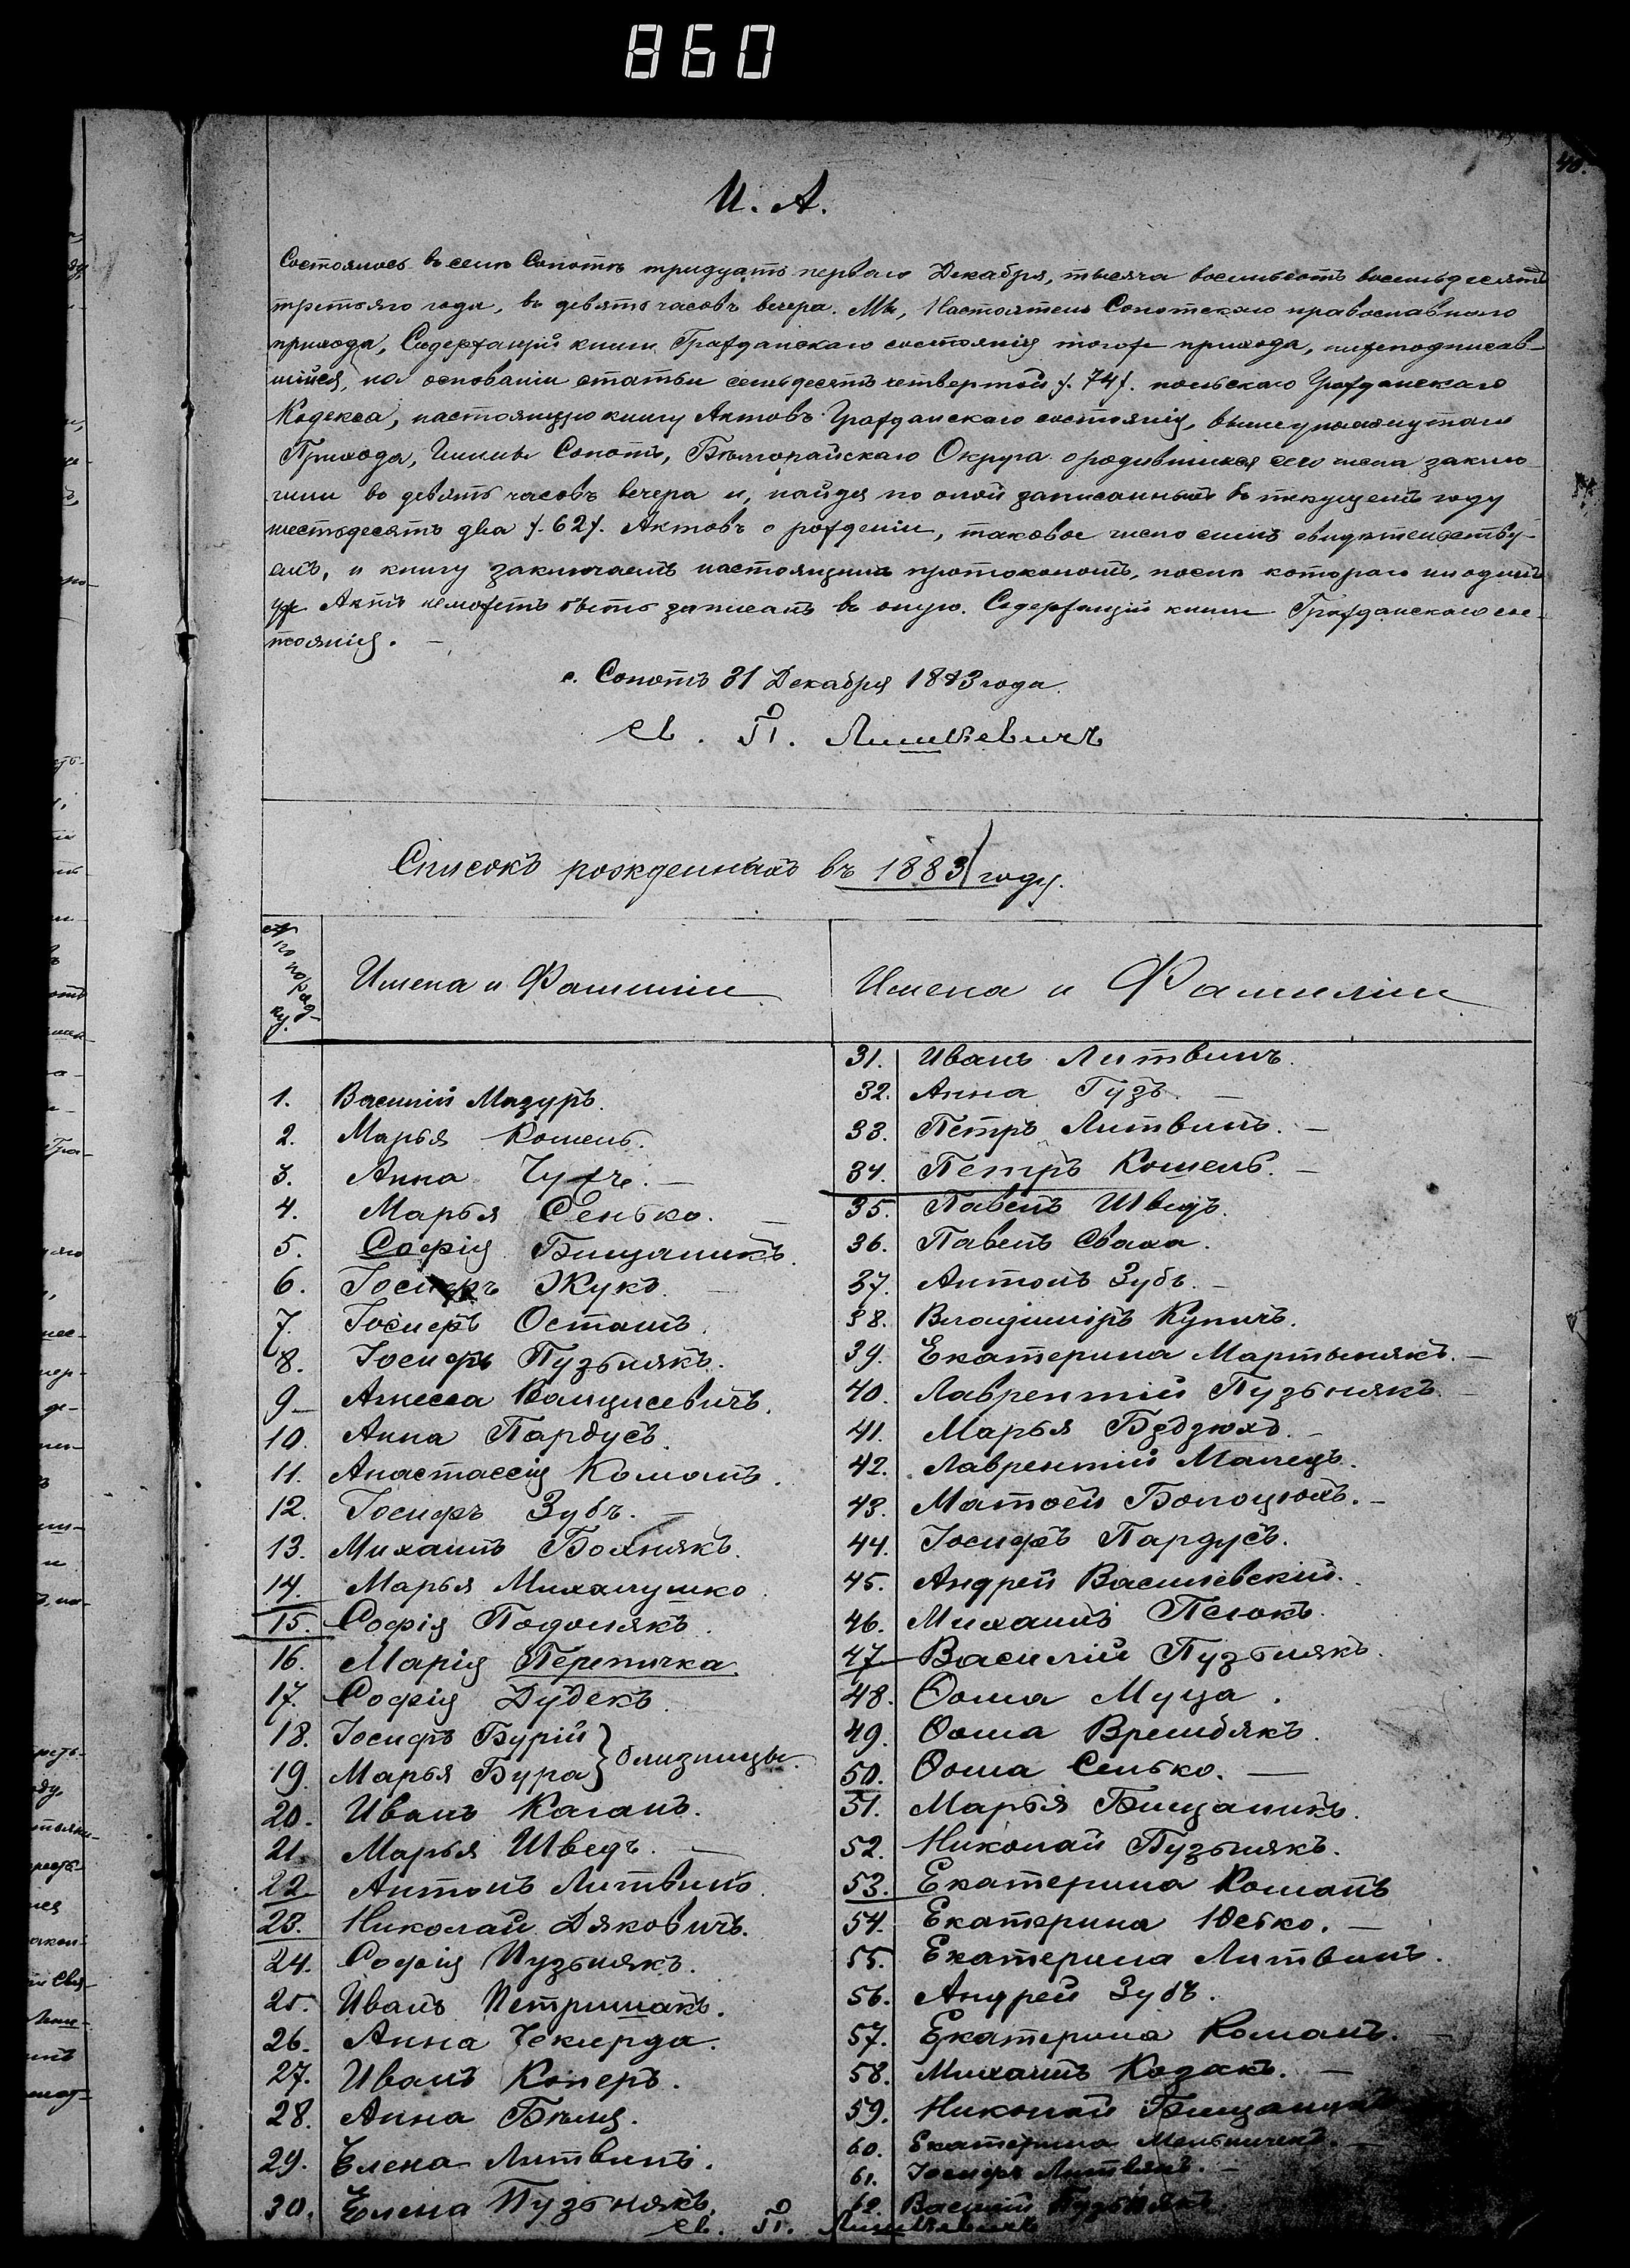 860
40.
И. А.
Состоялось въ селѣ Сопотѣ тридцать перваго Декабря, тысяча восемьсотъ восемьдесятъ
третьяго года, въ девять часовъ вечера. Мы, Настоятель Сопотскаго православнаго
прихода, Содержащій книги Гражданскаго состоянія тогоже прихода, нижеподписав-
шійся, на основаніи статьи семьдесятъ четвертой /:74/: польскаго Гражданскаго
Кодекса, настоящую книгу Актовъ Гражданскаго состоянія, вышеупомянутаго
Прихода, Гмины Сопотъ, Бѣлгорайскаго Округа о родившихся сего числа заклю-
чили въ девять часовъ вечера и, найдя по оной записанныхъ въ текущемъ году
шестьдесятъ два /:62/: Актовъ о рожденіи, таковое число симъ свидѣтельству-
емъ, и книгу заключаемъ настоящимъ протоколомъ, послѣ котораго ни одинъ
уже Актъ не можетъ быть записанъ въ оную. Содержащій книги Гражданскаго сос-
тоянія. —
с. Сопотъ 31 Декабря 1883 года.
Св. П.
Списокъ рожденныхъ въ 1883 году.
№ по поряд-
ку.
Имена и Фамиліи
Имена и Фамиліи
1. Василій Мазуръ.
2. Марья Кошель.
3. Анна —
4. Марья Сенько. —
5. Софія Бищаникъ.
6. Іосифъ Жукъ. —
7. Іосифъ Осташъ.
8. Іосифъ Пузьнякъ.
9. Агнесса Ванцисевичъ.
10. Анна Пардусъ.
11. Анастассія Команъ.
12. Іосифъ Зубъ. —
13. Михаилъ Вохнякъ.
14. Марья Михалушко.
15. Софія Подолякъ.
16. Марія Перепичка
17. Софія Дудекъ.
18. Іосифъ Бурій
19. Марья Бура } близницы.
20. Иванъ Каганъ.
21. Марья Шведъ. —
22. Антонъ Литвинъ.
23. Николай Дяковичъ.
24. Софія Пузьнякъ.
25. Иванъ Петришакъ.
26. Анна Чекирда.
27. Иванъ Коперъ.
28. Анна
29. Елена Литвинъ.
30. Елена Пузьнякъ.
31. Иванъ Литвинъ.
32. Анна Гузъ. —
33. Петръ Литвинъ. —
34. Петръ Кошель. —
35. Павелъ Шведъ.
36. Павелъ Сваха.
37. Антонъ Зубъ. —
38. Владиміръ Купичъ.
39. Екатерина Мартынякъ. —
40. Лаврентій Пузьнякъ. —
41. Марья Бздзюхъ. —
42. Лаврентій Малецъ.
43. Матѳей Волоцюхъ. —
44. Іосифъ Пардусъ.
45. Андрей Василевскій.
46. Михаилъ Пелюкъ.
47. Василій Пузьнякъ.
48. Ѳома Муца.
49. Ѳома Врембякъ.
50. Ѳома Сенько. —
51. Марья Бищаникъ.
52. Николай Пузьнякъ.
53. Екатерина Команъ
54. Екатерина Юсько. —
55. Екатерина Литвинъ.
56. Андрей Зубъ.
57. Екатерина Команъ. —
58. Михаилъ Козакъ. —
59. Николай Бищаникъ
60. Екатерина Мельничекъ. —
61. Іосифъ —
62. Василій Пузьнякъ.
Св. П.